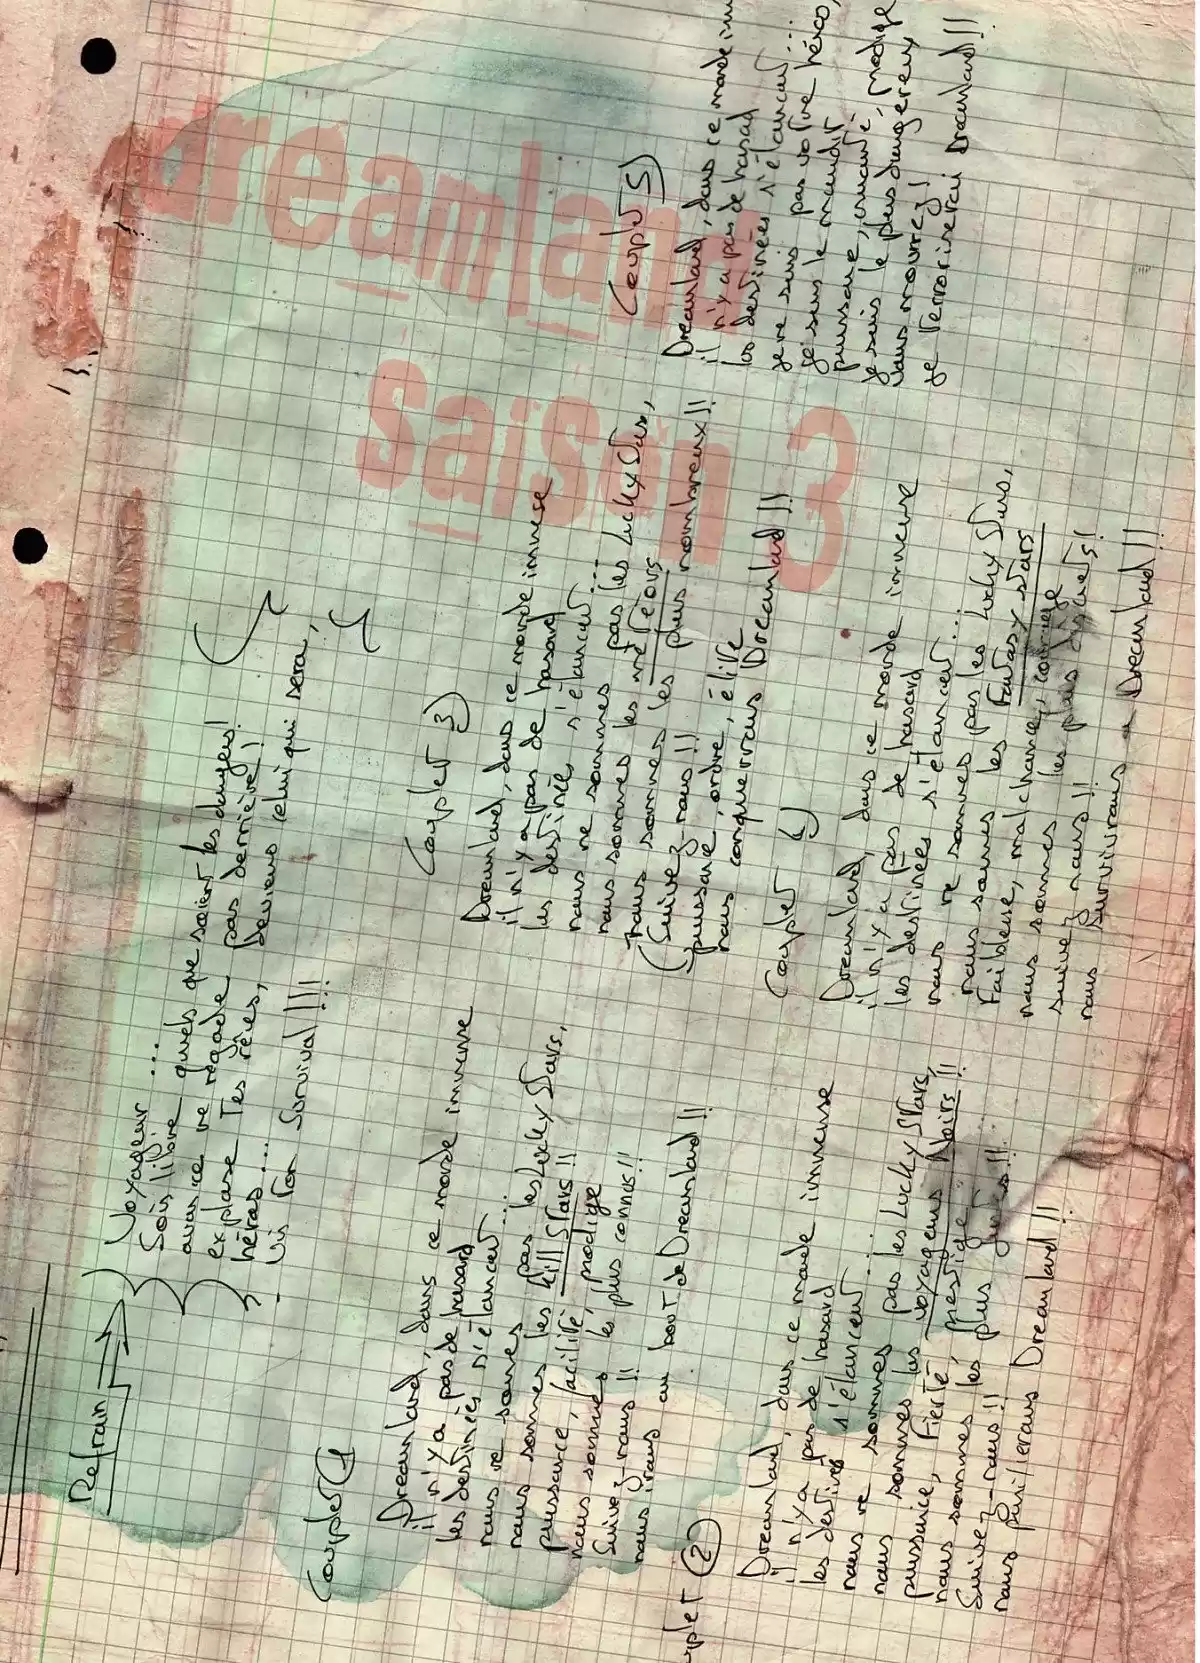 Dreamland
saison 3
Refrain
Voyageur ....
Sois libre
avance quels que soient les dangers!
ne regarde pas derrière!
explose Tes rêves, Deviens celui qui sera,
héros....
Vis Ton Survival!!!
Couplet 1
Dreamland, dans ce monde immense
il n'y a pas de hasard
les destinées s'élancent...
nous ne sommes pas les Lucky Stars,
nous sommes les Kill Stars!!
puissance, facilité, prodige
nous sommes les plus connus!!
Suivez-nous!!
nous irons au bout de Dreamland!!
Couplet 2
Dreamland, dans ce monde immense
il n'y a pas de hasard
les destinées s'élancent....
nous ne sommes pas les Lucky Stars,
nous sommes les voyageurs Noirs!!
puissance, Fierté, prestige
nous sommes les plus
Suivez-nous!!
nous purifierons Dreamland!!
Couplet 3
Dreamland, dans ce monde immense
il n'y a pas de hasard
les destinées s'élancent...
nous ne sommes pas les Lucky Stars,
nous sommes les météors
nous sommes les plus nombreux!!
(Suivez-nous!!
puissance, ordre, élite
nous conquerrons Dreamland!!
Couplet 4
Dreamland, dans ce monde immense
il n'y a pas de hasard
les destinées s'élancent...
nous ne sommes pas les Lucky Stars,
nous sommes les Fantasy Stars
Faiblesse, malchance, courage
nous sommes les plus
suivez nous!!
nous survivrons a Dreamland!!
Couplet 5
Dreamland, dans ce monde imm
il n'y a pas de hasard
les destinées s'élancent...
je ne suis pas votre héros,
je suis le maudit
puissance, cruauté, prodige
je suis le plus dangereux
Vous mourrez!
je terroriserai Dreamland!!